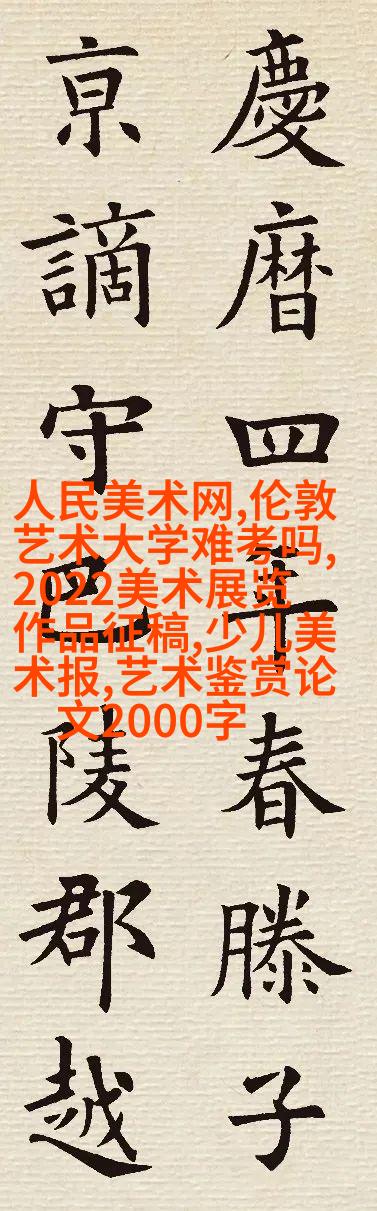 慶暦四年春滕子
亰謫守巴陵郡越
人民美术网,伦敦
艺术大学难考吗,
2022美术展览
作品征稿,少儿美
术报,艺术鉴赏论
文2000字